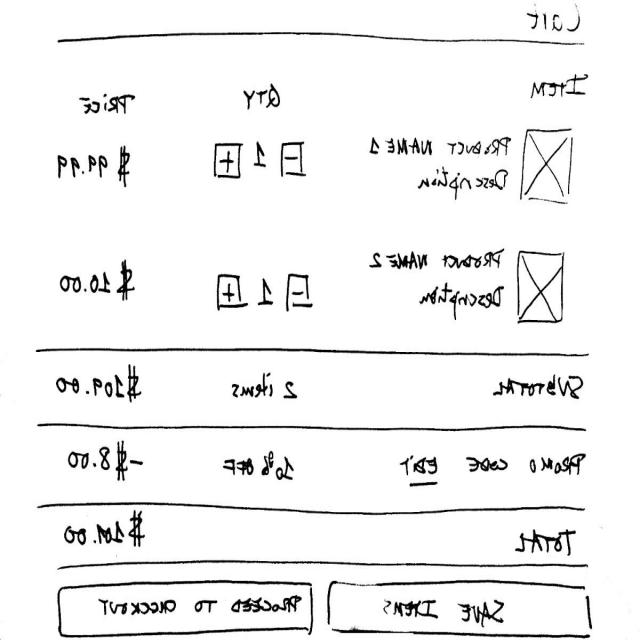 Cart
ITEM QTY PRICE
PRODUCT NAME 1 - 1 + $99.99
Description
PRODUCT NAME 2 - 1 + $10.00
Description
SUBTOTAL 2 items $109.00
PROMO CODE EDIT 10% OFF -$8.00
TOTAL $101.00
SAVE ITEMS PROCEED TO CHECKOUT